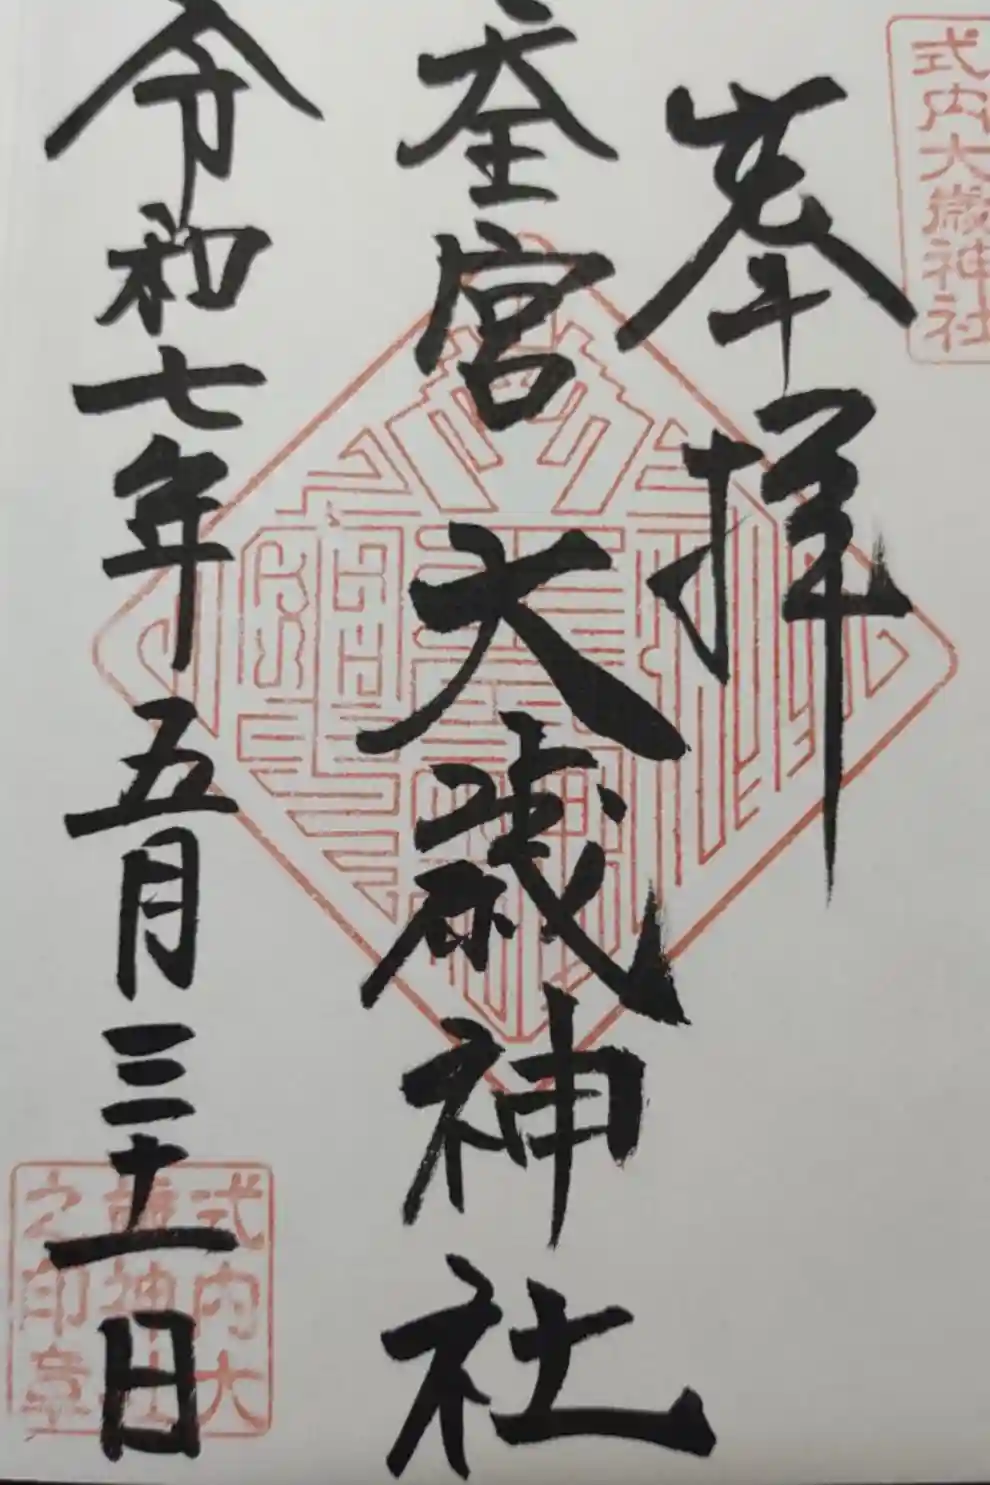 式内大歳神社
奉拝
奎宮 大歳神社
令和七年五月三十一日
式内大
歳神社
之印章